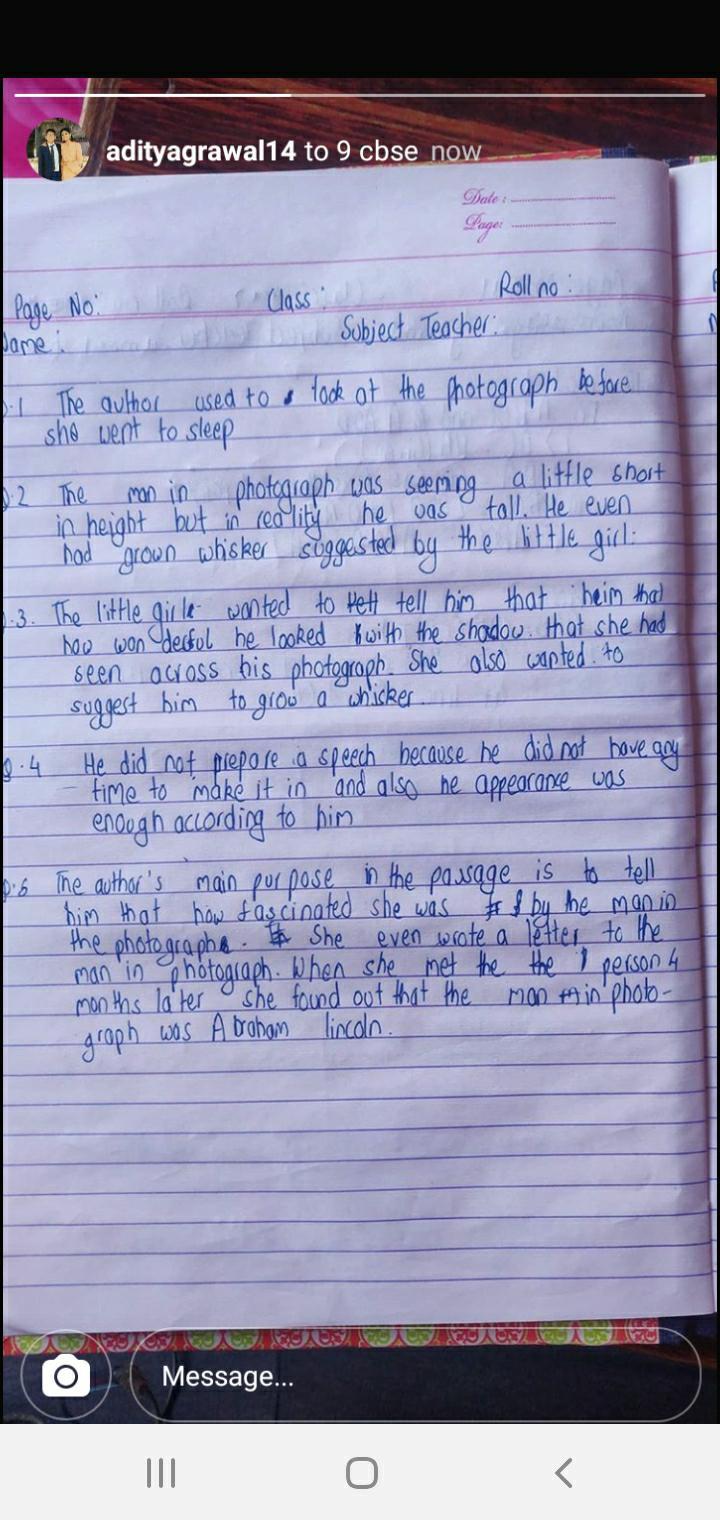 adityagrawal14 to 9 cbse now
Date:
Page:
Page No: Class: Roll no:
Name: Subject Teacher:
Q.1 The author used to look at the photograph before
she went to sleep
Q.2 The man in photograph was seeming a little short
in height but in reality he was tall. He even
had grown whisker suggested by the little girl.
Q.3. The little girl wanted to tell him that heim that
how wonderful he looked with the shadow that she had
seen across his photograph. She also wanted to
suggest him to grow a whicker.
Q.4 He did not prepare a speech because he did not have any
time to make it in and also he appearance was
enough according to him
The author's main purpose in the passage is to tell
him that how fascinated she was by the man in
the photograph. She even wrote a letter to the
man in photograph. When she met the the person 4
months later she found out that the man in photo-
graph was Abraham lincoln.
Message...